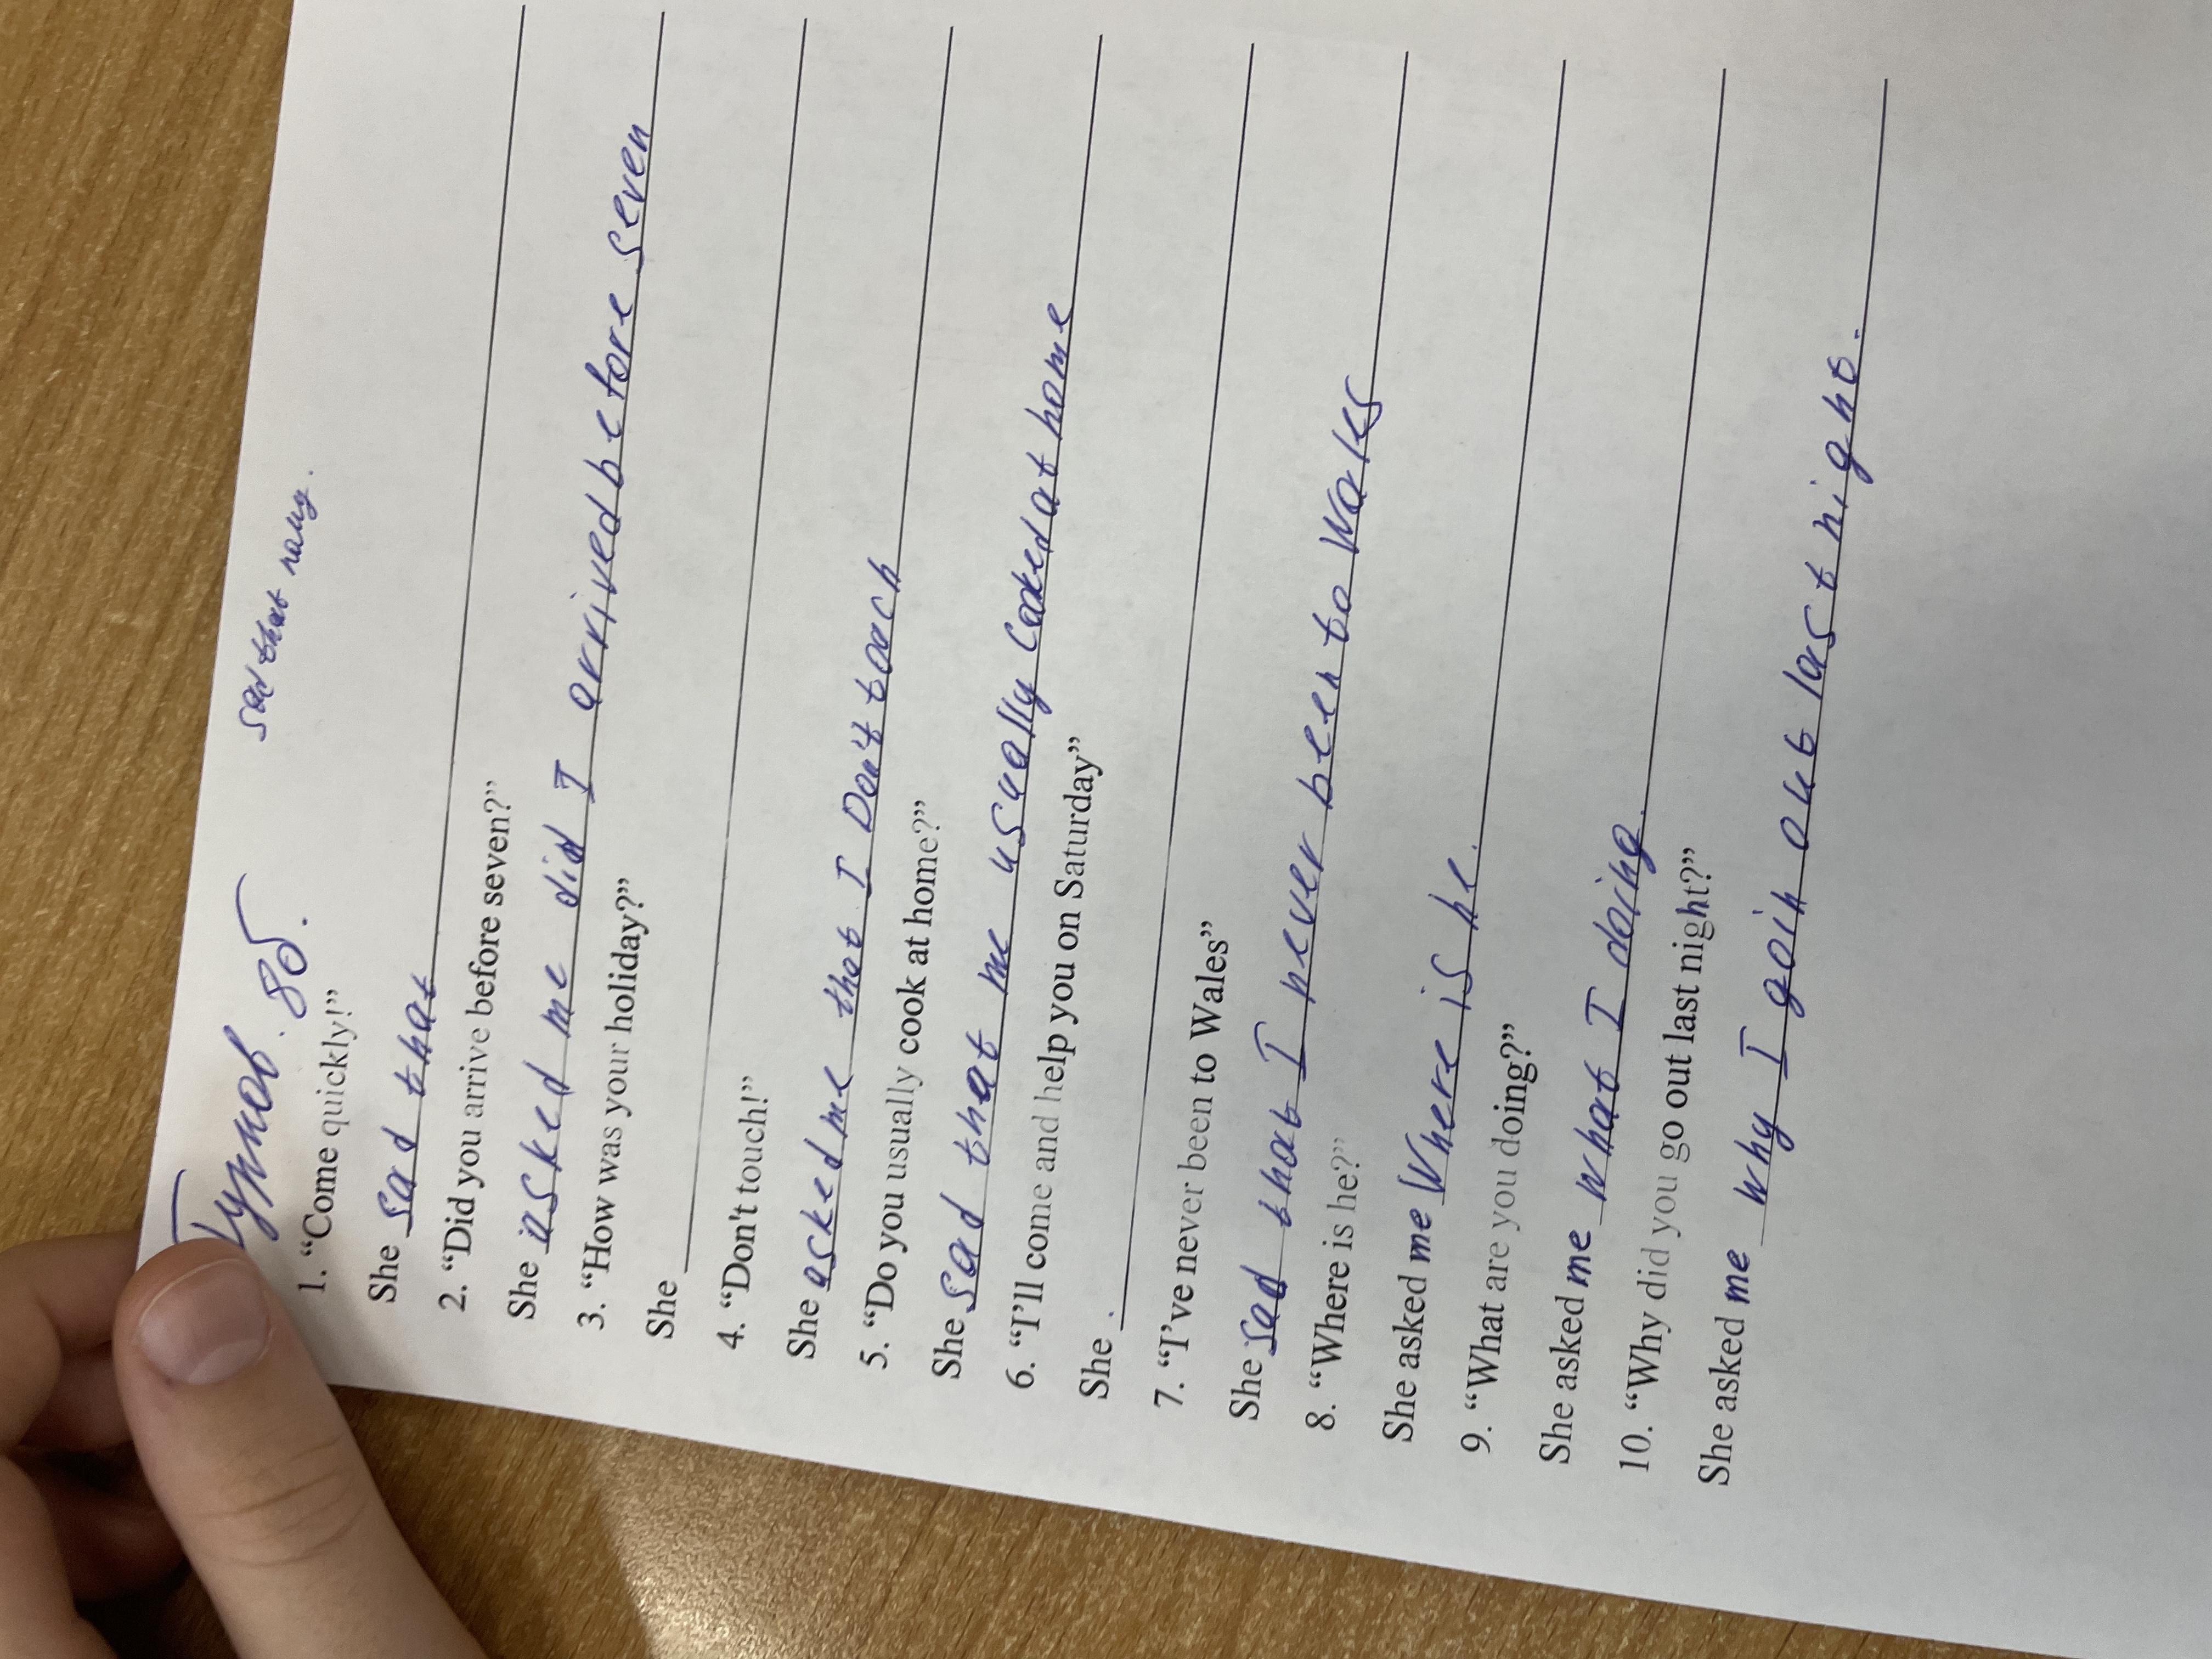 8б.
sad that
1. “Come quickly!”
She sad that
2. “Did you arrive before seven?”
She asked me did I arrived before seven
3. “How was your holiday?”
She
4. “Don't touch!”
She asked me that I Don't toach
5. “Do you usually cook at home?”
She sad that me usually Cooked at home
6. “I’ll come and help you on Saturday”
She .
7. “I’ve never been to Wales”
She sad that I never been to Wales
8. “Where is he?”
She asked me Where is he.
9. “What are you doing?”
She asked me what I doing.
10. “Why did you go out last night?”
She asked me why I goin out last night.